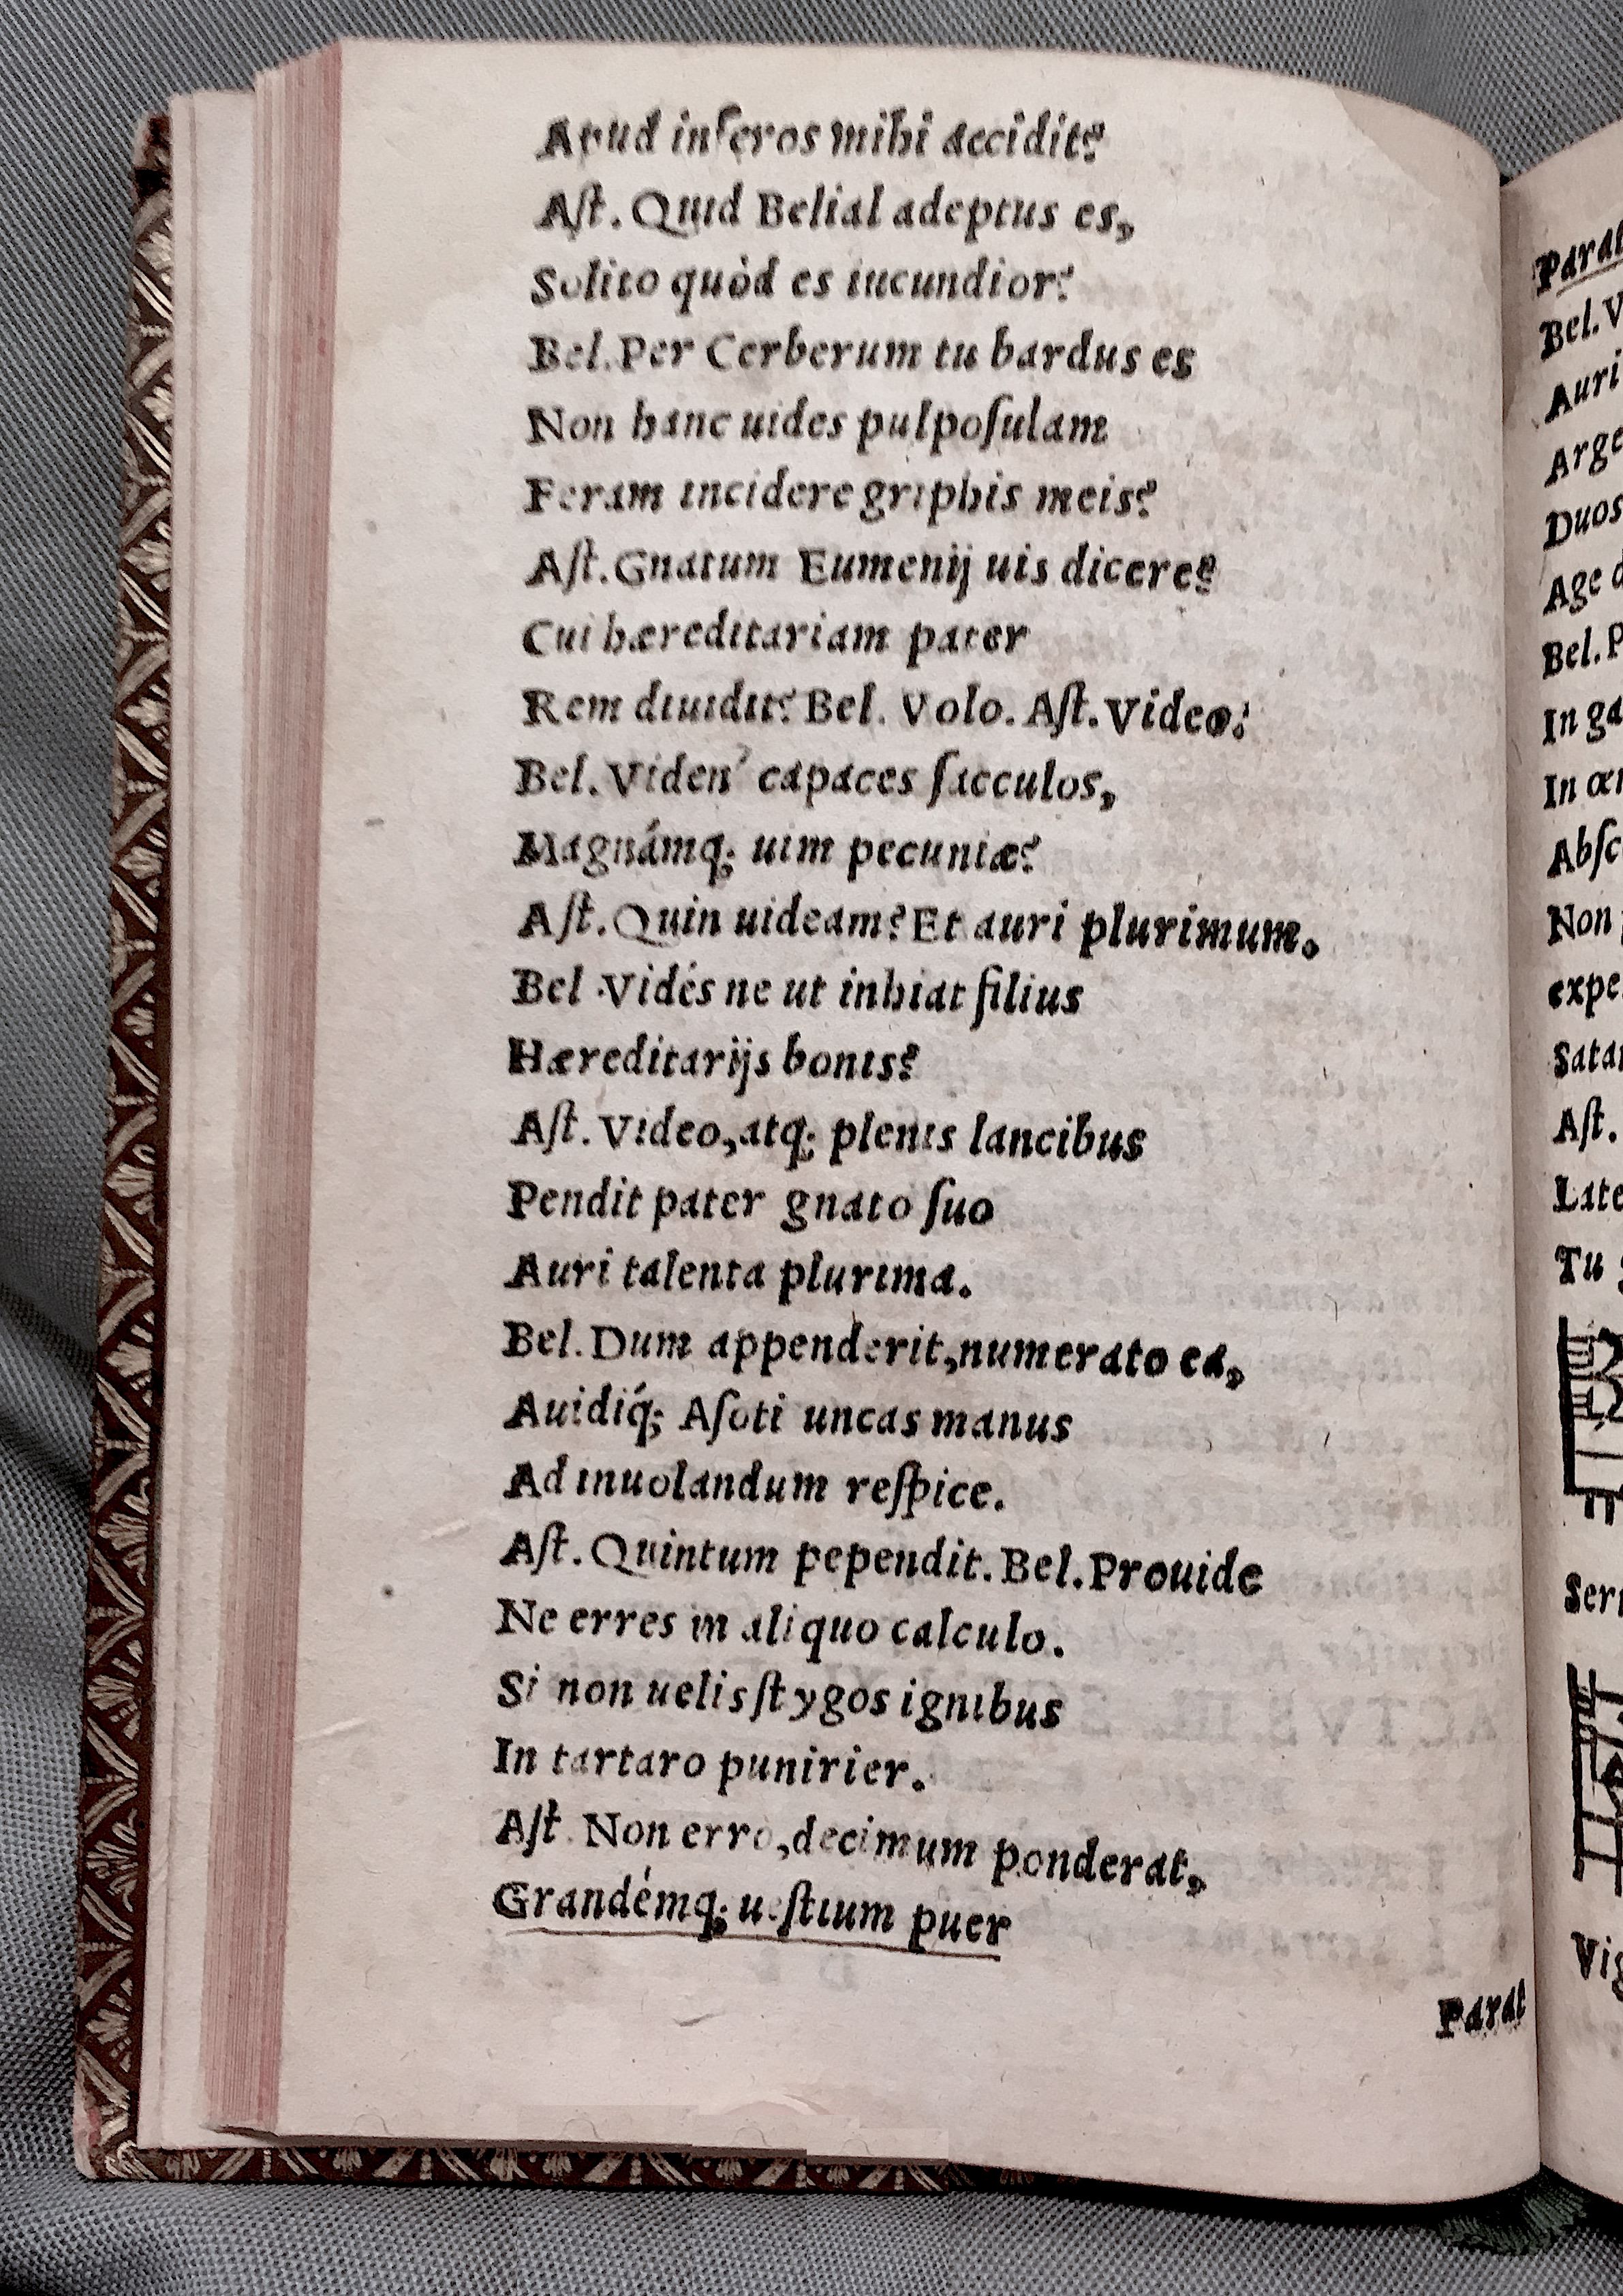 Apud inferos mihi accidit?
Aſt. Quid Belial adeptus es,
Solito quòd es iucundior?
Bel. Per Cerberum tu bardus es
Non hanc uides pulpoſulam
Feram incidere griphis meis?
Aſt. Gnatum Eumenij uis dicere?
Cui hæreditariam pater
Rem diuidit? Bel. Volo. Aſt. Video?
Bel. Viden' capaces ſacculos,
Magnámq; uim pecuniæ?
Aſt. Quin uideam? Et auri plurimum.
Bel. Vidés ne ut inhiat filius
Hæreditarijs bonis?
Aſt. Video, atq; plenis lancibus
Pendit pater gnato ſuo
Auri talenta plurima.
Bel. Dum appenderit, numerato ea,
Auidiq́; Aſoti uncas manus
Ad inuolandum reſpice.
Aſt. Quintum pependit. Bel. Prouide
Ne erres in aliquo calculo.
Si non uelis ſtygos ignibus
In tartaro punirier.
Aſt. Non erro, decimum ponderat,
Grandémq; ueſtium puer
Parat
Parat
Bel. V
Auri
Arge
Duos
Age d
Bel. P
In ga
In œn
Abſc
Non
expe
Satan
Aſt.
Late
Tu
Ser
Vig